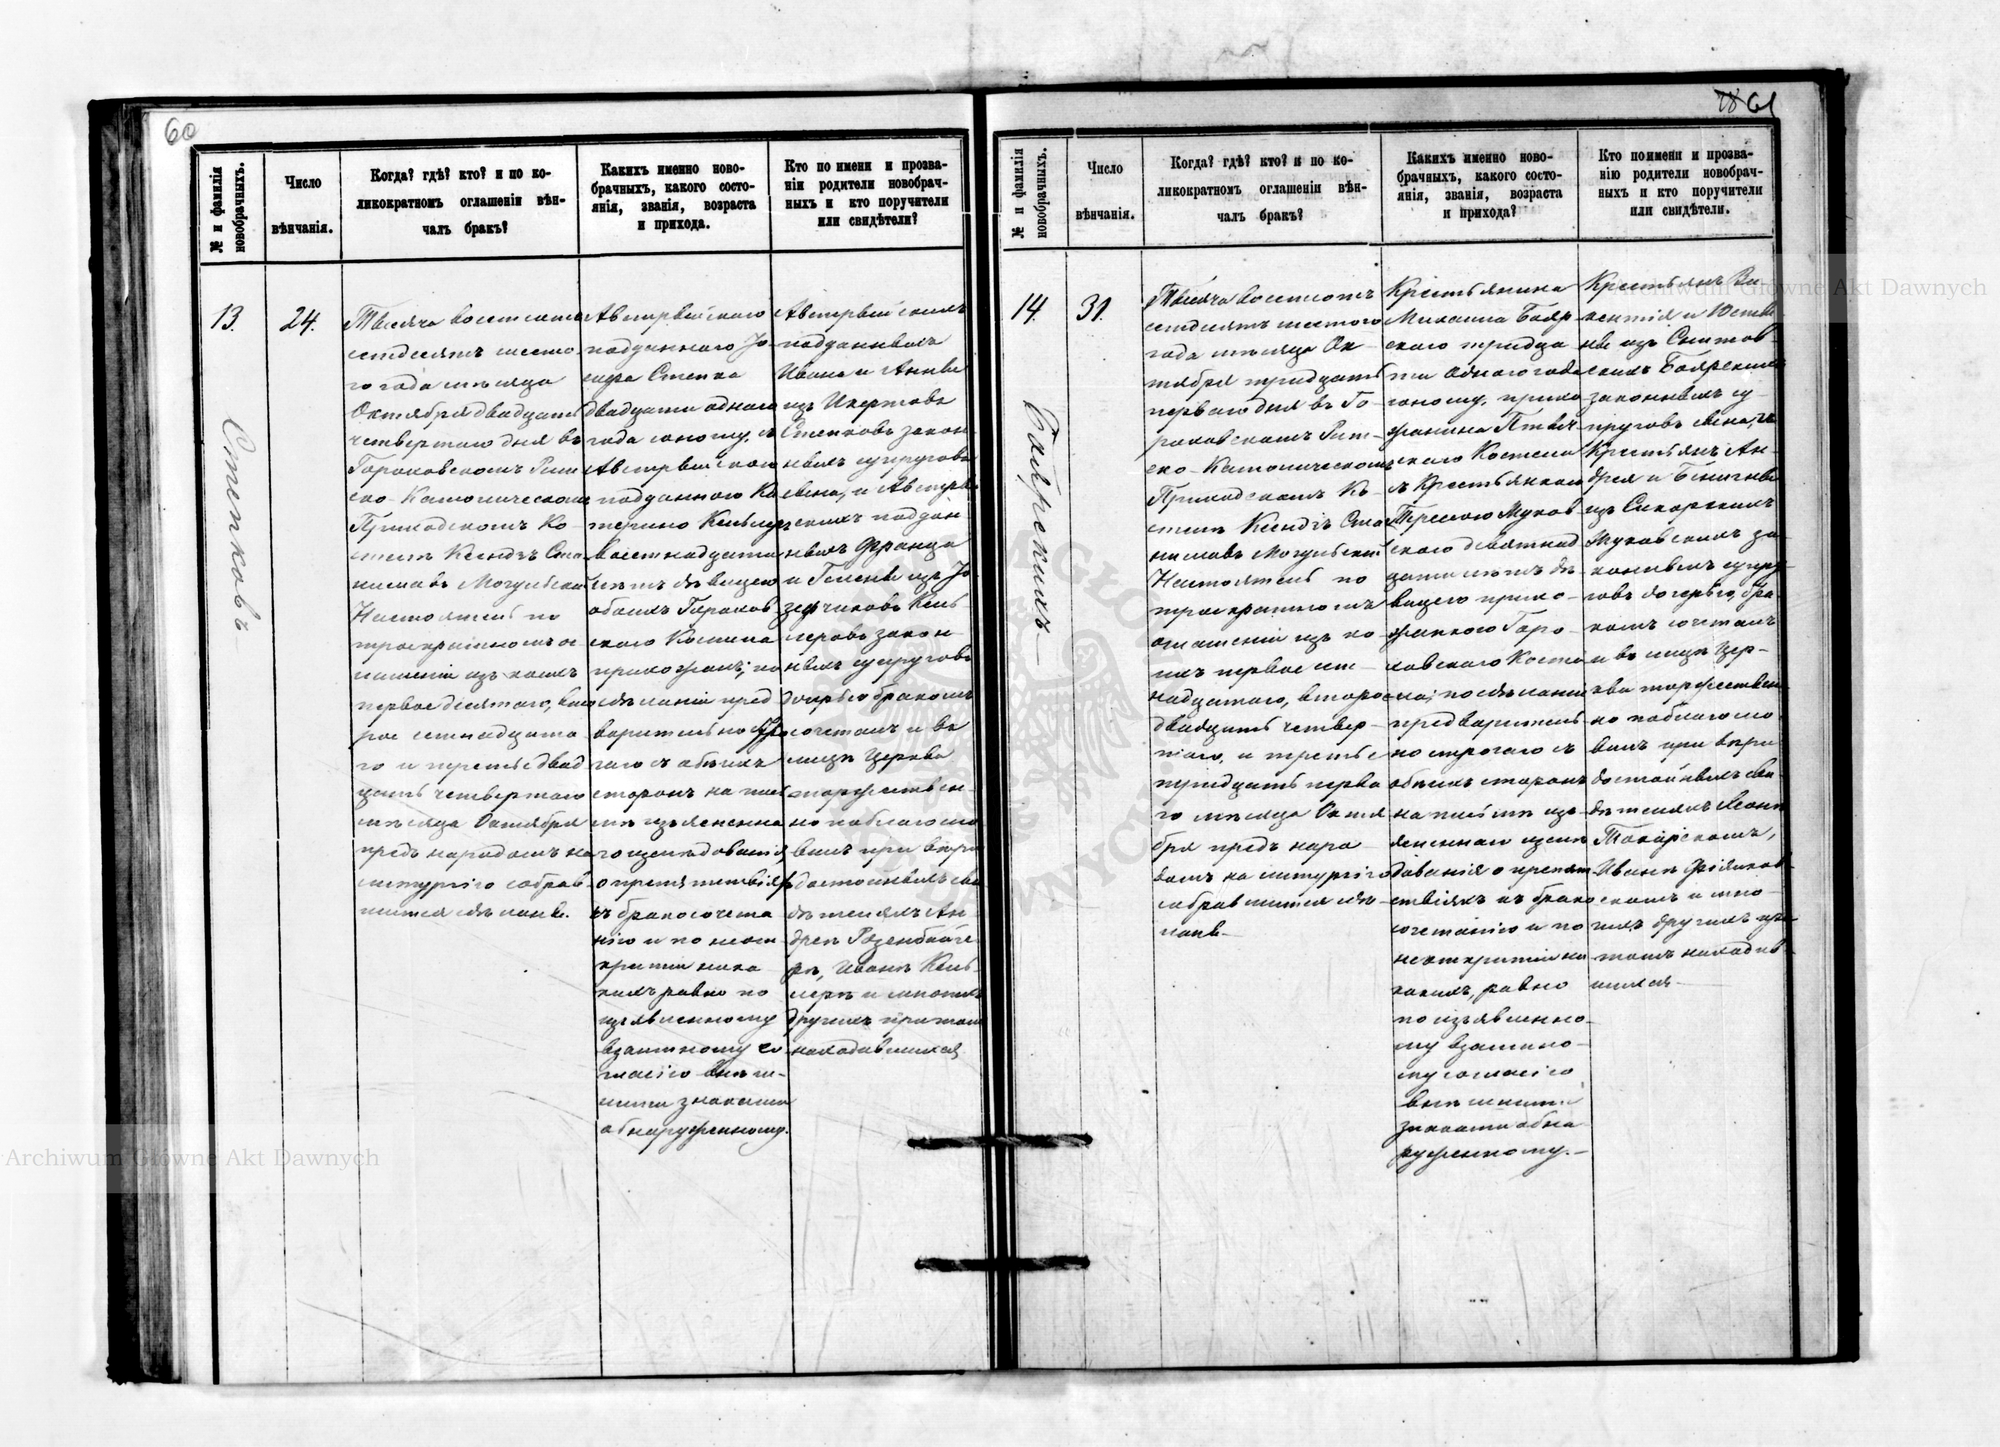 60
№ и фамилія
новобрачныхъ.
Число
вѣнчанія.
Когда? гдѣ? кто? и по ко-
ликократномъ оглашеніи вѣн-
чалъ бракъ?
Какихъ именно ново-
брачныхъ, какого состо-
янія, званія, возраста
и прихода.
Кто по имени и прозва-
ніи родители новобрач-
ныхъ и кто поручители
или свидѣтели?
13.
Степковъ
24.
Тысяча восемьсотъ
года мѣсяца
Октября двадцать
четвертаго дня въ
Гороховскомъ Рим
ско-Католическомъ
Приходскомъ Ко-
стелѣ Ксендзъ Ста
ниславъ
Настоятель по
троекратномъ о-
глашеніи изъ коихъ
первое десятаго, вто
рое семнадцата
го и третье двад
цать четвертаго
мѣсяца Октября
предъ народомъ на
литургію собрав
шимся
Австрійскаго
подданнаго Іо-
сифа Степка
двадцати одного
года юношу, съ
Австрійскою
подданною Ка
териною
восемнадцати
лѣтъ дѣвицею
обоихъ Горохов
скаго Костела
прихожанъ; по
сдѣланіи пред
варительно стро
гаго съ обѣихъ
сторонъ на пись
мѣ изъясненна
го изслѣдованія
о препятствіяхъ
къ бракосочета
нію и по неот
крытіи ника
кихъ равно по
изъявленному
взаимному со
гласію внѣш-
ними знаками
обнаруженному.
Австрійскихъ
подданныхъ
Ивана и Анны
изъ
Степковъ закон
ныхъ супруговъ
сына, и Австрій
скихъ поддан
ныхъ Франца
и Гелены изъ Іо
зефчиковъ Кель
леровъ закон
ныхъ супруговъ
дочерью бракомъ
сочеталъ и въ
лицѣ Церкви
торжествен-
но благосло
вилъ при вѣро
достойныхъ сви
дѣтеляхъ Ан
дреѣ Розенбейге
рѣ, Иванѣ Кел-
лерѣ и многихъ
другихъ при томъ
находившихся
61
№ и фамилія
новобрачныхъ.
Число
вѣнчанія.
Когда? гдѣ? кто? и по ко-
ликократномъ оглашеніи вѣн-
чалъ бракъ?
Какихъ именно ново-
брачныхъ, какого состо-
янія, званія, возраста
и прихода?
Кто по имени и прозва-
нію родители новобрач-
ныхъ и кто поручители
или свидѣтели.
14.
Боярскихъ
31.
Тысяча восемьсотъ
семдесятъ шестого
года мѣсяца Ок-
тября тридцать
перваго дня въ Го-
роховскомъ Рим-
ско-Католическомъ
Приходскомъ Ко-
стелѣ Ксендзъ Ста
ниславъ
Настоятель по
троекратномъ
оглашеніи изъ ко
ихъ первое сем-
надцатаго, второе
двадцать четвер-
таго, и третье
тридцать перва
го мѣсяца Октя
бря предъ наро
домъ на литургію
собравшимся
Крестьянина
Михаила Бояр
скаго тридца
ти одного года
юношу, прихо
жанина
скаго Костела
съ Крестьянкою
Терезою Муков
скою девятнад
цати лѣтъ дѣ
вицею прихо-
жанкою Горо-
ховскаго Косте
ла; по сдѣланіи
предваритель
но строгаго съ
обѣихъ сторонъ
на письмѣ изъ
ясненнаго изслѣ
дованія о препят
ствіяхъ къ брако
сочетанію и по
неоткрытіи ни
какихъ, равно
по изъявленно-
му взаимно-
му согласію
внѣшними
знаками обна
руженному.
Крестьянъ Ви
кентія и Юсти
ны изъ
Боярскихъ
законныхъ су-
пруговъ сына, съ
Крестьянъ Ан-
дрея и
изъ Сикорскихъ
Муковскихъ за
конныхъ супру-
говъ дочерью, бра
комъ сочеталъ
и въ лицѣ Цер-
кви торжествен
но благосло
вилъ при вѣро
достойныхъ сви
дѣтеляхъ
Токарскомъ,
Иванѣ
скомъ и мно-
гихъ другихъ при
томъ находив
шихся
Archiwum Główne Akt Dawnych
Archiwum Główne Akt Dawnych